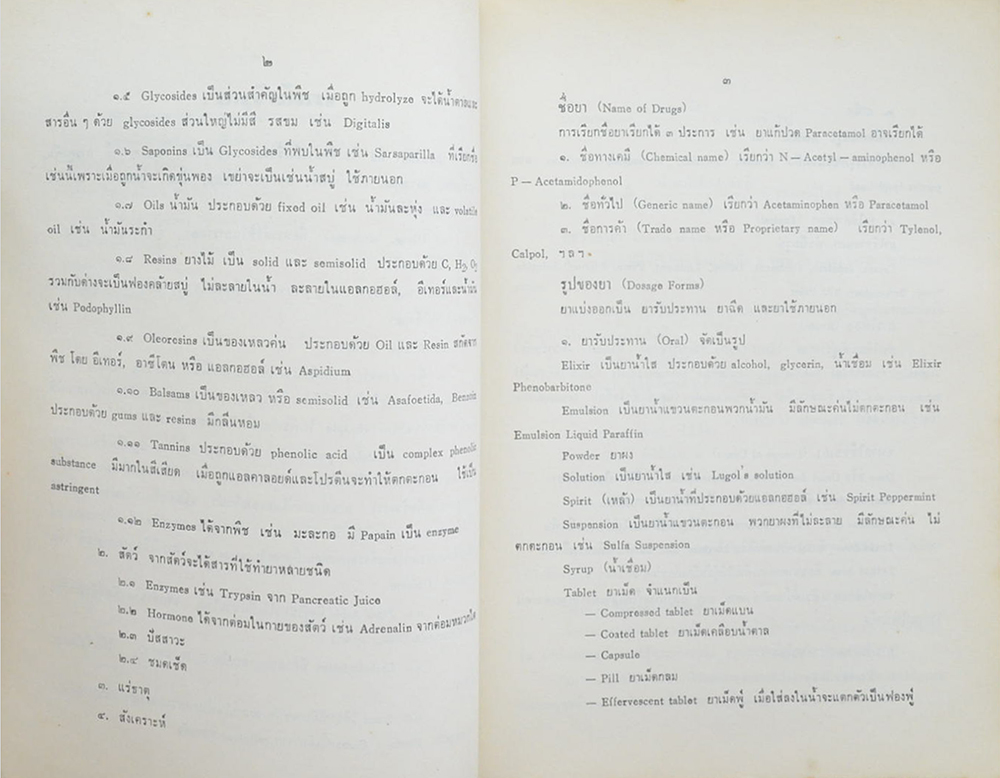 ๒
๑.๕ Glycosides เป็นส่วนสำคัญในพืช เมื่อถูก hydrolyze จะได้น้ำตาลและ
สารอื่น ๆ ด้วย glycosides ส่วนใหญ่ไม่มีสี รสขม เช่น Digitalis
๑.๖ Saponins เป็น Glycosides ที่พบในพืช เช่น Sarsaparilla ที่เรียกชื่อ
เช่นนี้เพราะเมื่อถูกน้ำจะเกิดขุ่นพอง เขย่าจะเป็นเช่นน้ำสบู่ ใช้ภายนอก
๑.๗ Oils น้ำมัน ประกอบด้วย fixed oil เช่น น้ำมันละหุ่ง และ volatile
oil เช่น น้ำมันระกำ
๑.๘ Resins ยางไม้ เป็น solid และ semisolid ประกอบด้วย C, H2, O2
รวมกับด่างจะเป็นฟองคล้ายสบู่ ไม่ละลายในน้ำ ละลายในแอลกอฮอล์, อีเทอร์และน้ำมัน
เช่น Podophyllin
๑.๙ Oleoresins เป็นของเหลวค่น ประกอบด้วย Oil และ Resin สกัดจาก
พืช โดย อีเทอร์, อาซีโตน หรือ แอลกอฮอล์ เช่น Aspidium
๑.๑๐ Balsams เป็นของเหลว หรือ semisolid เช่น Asafoetida, Benzoin
ประกอบด้วย gums และ resins มีกลิ่นหอม
๑.๑๑ Tannins ประกอบด้วย phenolic acid เป็น complex phenolic
substance มีมากในสีเสียด เมื่อถูกแอลคาลอยด์และโปรตีนจะทำให้ตกตะกอน ใช้เป็น
astringent
๑.๑๒ Enzymes ได้จากพืช เช่น มะละกอ มี Papain เป็น enzyme
๒. สัตว์ จากสัตว์จะได้สารที่ใช้ทำยาหลายชนิด
๒.๑ Enzymes เช่น Trypsin จาก Pancreatic Juice
๒.๒ Hormone ได้จากต่อมในกายของสัตว์ เช่น Adrenalin จากต่อมหมวกไต
๒.๓ ปัสสาวะ
๒.๔ ชมดเช็ด
๓. แร่ธาตุ
๔. สังเคราะห์
๓
ชื่อยา (Name of Drugs)
การเรียกชื่อยาเรียกได้ ๓ ประการ เช่น ยาแก้ปวด Paracetamol อาจเรียกได้
๑. ชื่อทางเคมี (Chemical name) เรียกว่า N — Acetyl — aminophenol หรือ
P — Acetamidophenol
๒. ชื่อทั่วไป (Generic name) เรียกว่า Acetaminophen หรือ Paracetamol
๓. ชื่อการค้า (Trade name หรือ Proprietary name) เรียกว่า Tylenol,
Calpol, ฯลฯ.
รูปของยา (Dosage Forms)
ยาแบ่งออกเป็น ยารับประทาน ยาฉีด และยาใช้ภายนอก
๑. ยารับประทาน (Oral) จัดเป็นรูป
Elixir เป็นยาน้ำใส ประกอบด้วย alcohol, glycerin, น้ำเชื่อม เช่น Elixir
Phenobarbitone
Emulsion เป็นยาน้ำแขวนตะกอนพวกน้ำมัน มีลักษณะค่นไม่ตกตะกอน เช่น
Emulsion Liquid Paraffin
Powder ยาผง
Solution เป็นยาน้ำใส เช่น Lugol's solution
Spirit (เหล้า) เป็นยาน้ำที่ประกอบด้วยแอลกอฮอล์ เช่น Spirit Peppermint
Suspension เป็นยาน้ำแขวนตะกอน พวกยาผงที่ไม่ละลาย มีลักษณะค่น ไม่
ตกตะกอน เช่น Sulfa Suspension
Syrup (น้ำเชื่อม)
Tablet ยาเม็ด จำแนกเป็น
— Compressed tablet ยาเม็ดแบน
— Coated tablet ยาเม็ดเคลือบน้ำตาล
— Capsule
— Pill ยาเม็ดกลม
— Effervescent tablet ยาเม็ดฟู่ เมื่อใส่ลงในน้ำจะแตกตัวเป็นฟองฟู่